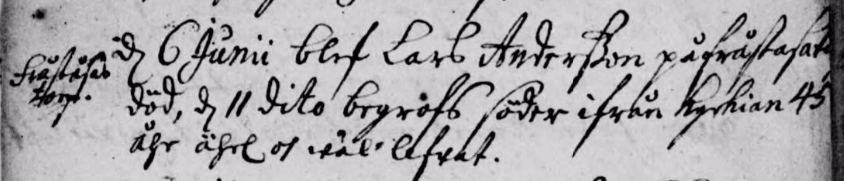 Fråståsas
torp.
dj 6 Junii blef Lars Andersson på fråstasat
död, dj 11 dito begrofs söder ifrån kyrkian 45
åhr åhel ok wäl lefvat.